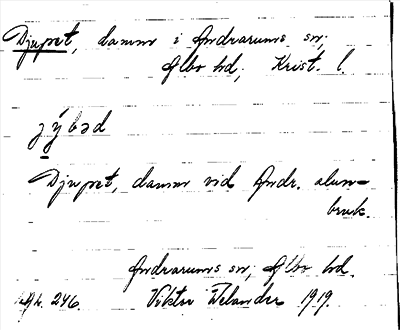 Djupet, damm i Andrarums sn;
Albo hd; Krist. l.
jýbəd
Djupet, damm vid Andr. alun-
bruk.
Andrarums sn; Albo hd.
246. Viktor Welander 1919.